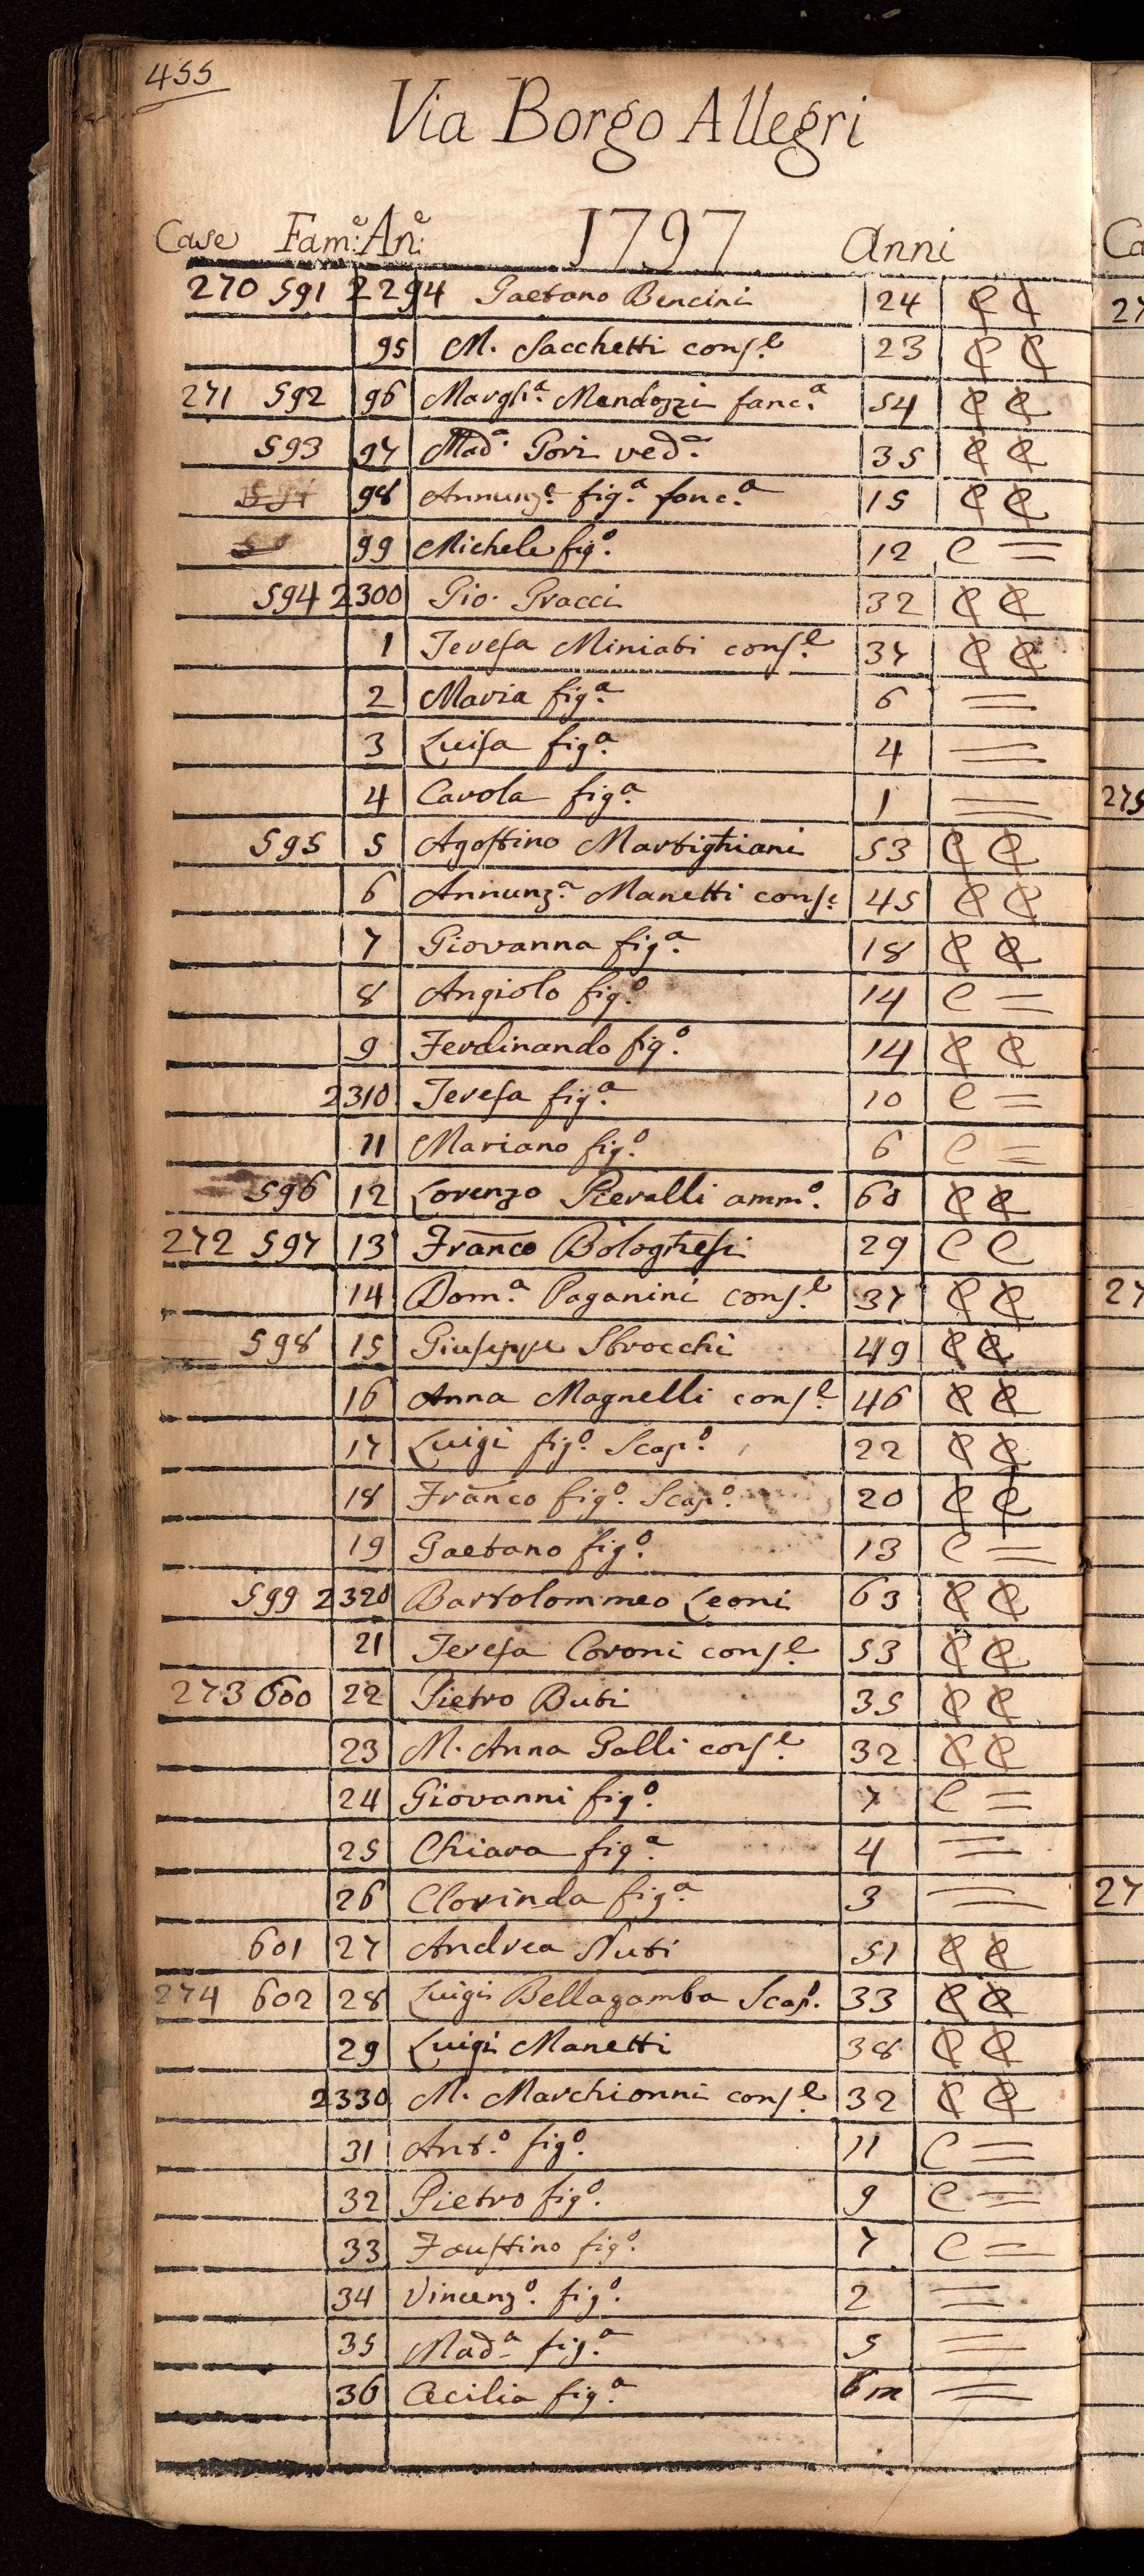 455
Via Borgo Allegri
Case Fam:e An:e 1797 Anni
270 591 2294 Gaetano Bencini 24 C C
95 M. Sacchetti conſ.e 23 C C
271 592 96 Margh.a Mendozzi fanc.a 54 C C
593 97 Mad.a Gori ved.a 35 C C
594 98 Annunz.a fig.a fanc.a 15 C C
99 Michele fig.o 12 C =
594 2300 Gio. Gracci 32 C C
1 Tereſa Miniati conſ.e 37 C C
2 Maria fig.a 6 =
3 Luiſa fig.a 4 =
4 Carola fig.a 1 =
595 5 Agoſtino Martighiani 53 C C
6 Annunz.a Manetti conſ.e 45 C C
7 Giovanna fig.a 18 C C
8 Angiolo fig.o 14 C =
9 Ferdinando fig.o 14 C C
2310 Tereſa fig.a 10 C =
11 Mariano fig.o 6 C =
596 12 Lorenzo Pieralli amm.o 60 C C
272 597 13 Franco Bologheſi 29 C C
14 Dom.a Paganini conſ.e 37 C C
598 15 Giuſeppe Sbrocchi 49 C C
16 Anna Magnelli conſ.e 46 C C
17 Luigi fig.o Scap.o 22 C C
18 Franco fig.o Scap.o 20 C C
19 Gaetano fig.o 13 C =
599 2320 Bartolommeo Leoni 63 C C
21 Tereſa Coroni conſ.e 53 C C
273 600 22 Pietro Buti 35 C C
23 M. Anna Galli conſ.e 32 C C
24 Giovanni fig.o 7 C =
25 Chiara fig.a 4 =
26 Clorinda fig.a 3 =
601 27 Andrea Nuti 51 C C
274 602 28 Luigi Bellagamba Scap.o 33 C C
29 Luigi Manetti 38 C C
2330 M. Marchionni conſ.e 32 C C
31 Ant.o fig.o 11 C =
32 Pietro fig.o 9 C =
33 Fauſtino fig.o 7 C =
34 Vincenz.o fig.o 2 =
35 Mad.a fig.a 5 =
36 Cecilia fig.a 6 m =